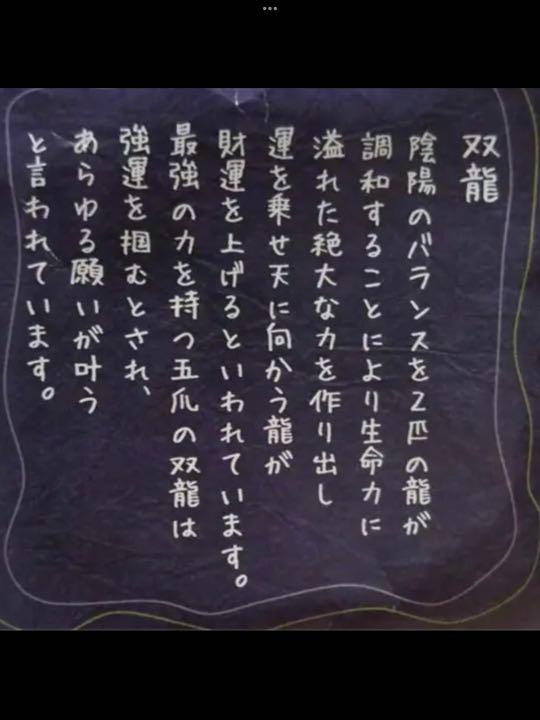 双龍
陰陽のバランスを2匹の龍が
調和することにより生命力に
溢れた絶大な力を作り出し
運を乗せ天に向かう龍が
財運を上げるといわれています。
最強の力を持つ五爪の双龍は
強運を掴むとされ、
あらゆる願いが叶う
と言われています。